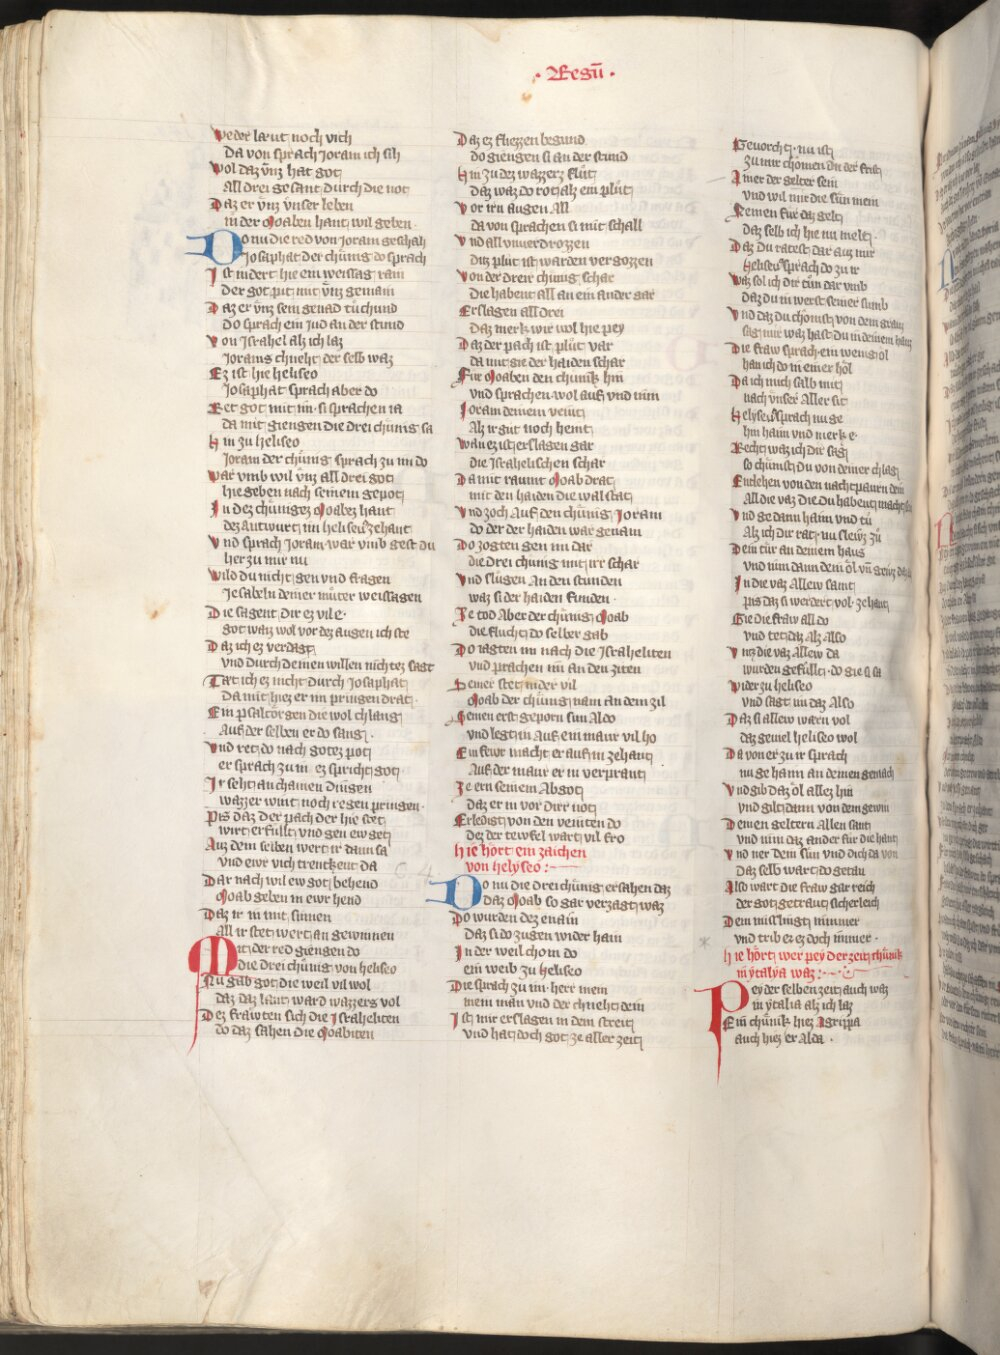 · Regū ·
Weder laut noch vich
Da von sprach Joram ich sih
Wol daz vnz hat got
All drei gesant durch die not
Daz er vnz vnser leben
in der Moaben hant wil geben
Do nu die red von Joram geschah
Josaphat der chünig do sprach
Ist indert hie ein weissag ram
Der got pit mit vnz gemain
Daz er vnz sein genad tü chund
Do sprach ein Jud an der stund
Von Israhel alz ich laz
Jorams chneht der selb waz
Ez ist hie heliseo
Josaphat sprach aber do
Ret got mit im si sprachen ia
da mit giengen die drei chünig sa
Hin zu heliseo
Joram der chünig sprach zu im do
War vmb wil vnz all drei got
hie geben nach seinem gepot
In dez chüniges Moabez hant
dez antwurt im heliseus zehant
Vnd sprach Joram war vmb gest du
her zu mir nu
Wild du nicht gen vnd fragen
Jesabeln deiner müter weissagen
Die sagent dir ez vil e
got waiz wol vor dez augen ich ste
Daz ich ez verdagt
vnd durch deinen willen nichtez sagt
Tät ich ez nicht durch Josaphat
Da mit hiez er im pringen drat
Ein psaltörgen die wol chlang
Auf der selben er do sang
Vnd ret do nach gotez pot
er sprach zu in ez spricht got
Ir seht auch ainen dingen
wazzer wint noch regen pringen
Piz daz der pach der hie stet
wirt erfüllt vnd gen ew get
Auz dem selben wert ir dann sa
vnd ewr vich trenkent da
Dar nach wil ew got behend
Moab geben in ewr hend
Daz ir in mit sinnen
All ir stet wert an gewinnen
Mit der red giengen do
die drei chünig von heliseo
Nu gab got die weil vil wol
daz daz lant ward wazzers vol
Dez frawten sich die Israheliten
do daz sahen die Moabiten
Daz ez fliezzen begund
do giengen si an der stund
Hin zu dez wazzerz flüt
Daz waz do rot alz ein plüt
Vor irn augen All
da von sprachen si mit schall
Vnd all vnuerdrozzen
ditz plüt ist warden vergozzen
Von der dreir chünig schar
Die habent all an ein ander gar
Erslagen all drei
Daz merk wir wol hie pey
Daz der pach ist plüt var
da mit gie der haiden schar
Für Moaben den chünik hin
vnd sprachen wol auf vnd nim
Joram deinem veint
Alz ir güt noch heint
Wan ez ist erslagen gar
die Israhelischen schar
Da mit raumt Moab drat
mit den haiden die walstat
Vnd zoch auf den chünig Joram
do der der haiden war genam
Do zogten gen im dar
die drei chünig mit irr schar
Vnd slügen an den stunden
waz si der haiden funden
Ie tod Aber der chünig Moab
die flucht do selber gab
Do iagten im nach die Israheliten
vnd prachen im an den ziten
Seiner stet nider vil
Moab der chünig nam an dem zil
Seinen erst geporn sun Aldo
vnd legt in auf ein maur vil ho
Ein fewr macht er auf in zehant
Auf der maur er in verprant
Ze ern seinem Abgot
daz er in vor dirr not
Erledigt von den veinten do
dez der tewfel wart vil fro
hie hört ein zaichen
von helyseo
Do nu die drei chünig ersahen daz
daz Moab so gar verzagt waz
Do wurden dez enain
daz si do zugen wider hain
In der weil chom do
ein weib zu heliseo
Die sprach zu im herr mein
mein man vnd der chneht dein
Ist mir erslagen in dem streit
vnd hat doch got ze aller zeit
Geuorcht nu ist
zu mir chömen an der frist
Ainer der gelter sein
vnd wil mir die sün mein
Nemen für daz gelt
daz selb ich hie nu melt
Daz du ratest dar auz mir
heliseus sprach do zu ir
Waz sol ich dir tün dar vmb
daz du in werst seiner sumb
Vnd daz du chömst von dem gram
sag mir waz hast du in deinem ham
Die fraw sprach ein wenig öl
han ich do in einer höl
Da ich mich salb mit
nach vnser Aller sit
Helyseus sprach nu ge
hin haim vnd merk e
Recht waz ich dir sag
so chümst du von deiner chlag
Entlehen von den nachtpaurn dem
All die vaz die du habent macht
Vnd ge dann haim vnd tü
Alz ich dir rat nu slewz zü
Dein tür an deinem haus
vnd nim dann dein öl vnd geuz
In die vaz Allew samt
piz daz si werdent vol zehant
Gie die fraw all do
vnd tet daz Alz Also
Vntz die vaz Allew da
wurden gefüllt do gie si sa
Wider zu heliseo
vnd sagt im daz Also
Daz si allew wern vol
daz geuiel heliseo wol
Da von er zu ir sprach
nu ge haim an deinen gemach
Vnd gib daz öl allez hin
vnd gilt dann von dem gewin
Deinen geltern Allen sant
vnd nim daz ander für die hant
Vnd ner dein sün vnd dich da von
daz selb wart do getan
Also wart die fraw gar reich
der got getraut sicherleich
Dem misslingt nimmer
vnd trib er ez doch immer
hie hört wer pey der zeit chünik
in ytalya waz
Pey der selben zeit auch waz
in ytalia alz ich laz
Ein chünik hiez Agrippa
auch hiez er Alda